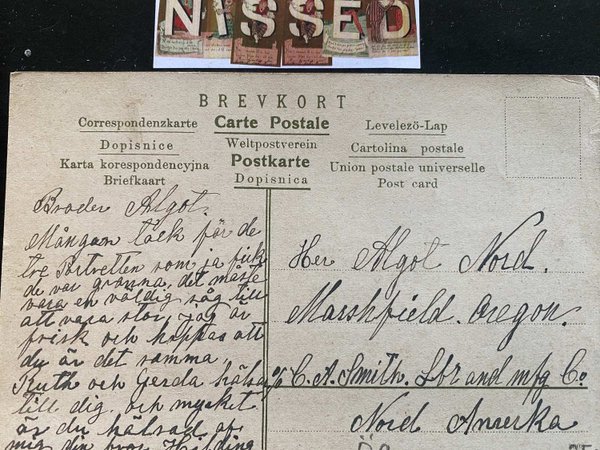 NISSED
BREVKORT
Correspondenzkarte Carte Postale Levelező-Lap
Dopisnice Weltpostverein Cartolina postale
Karta korespondencyjna Postkarte Union postale universelle
Briefkaart Dopisnica Post card
Broder Algot.
Mångan tack för de
tre Portretten som ja fick
de var granna, det måste
vara en väldig såg till
att vara stor, Jag är
frisk och hoppas att
du är det samma,
Ruth och Gerda hälsa
till dig, och mycket
är du hälsad av
mig din bror Hilding
Her Algot Nord.
Marshfield. Oregon.
c/o C. A. Smith. Lbr and mfg Co
Nord Amerika